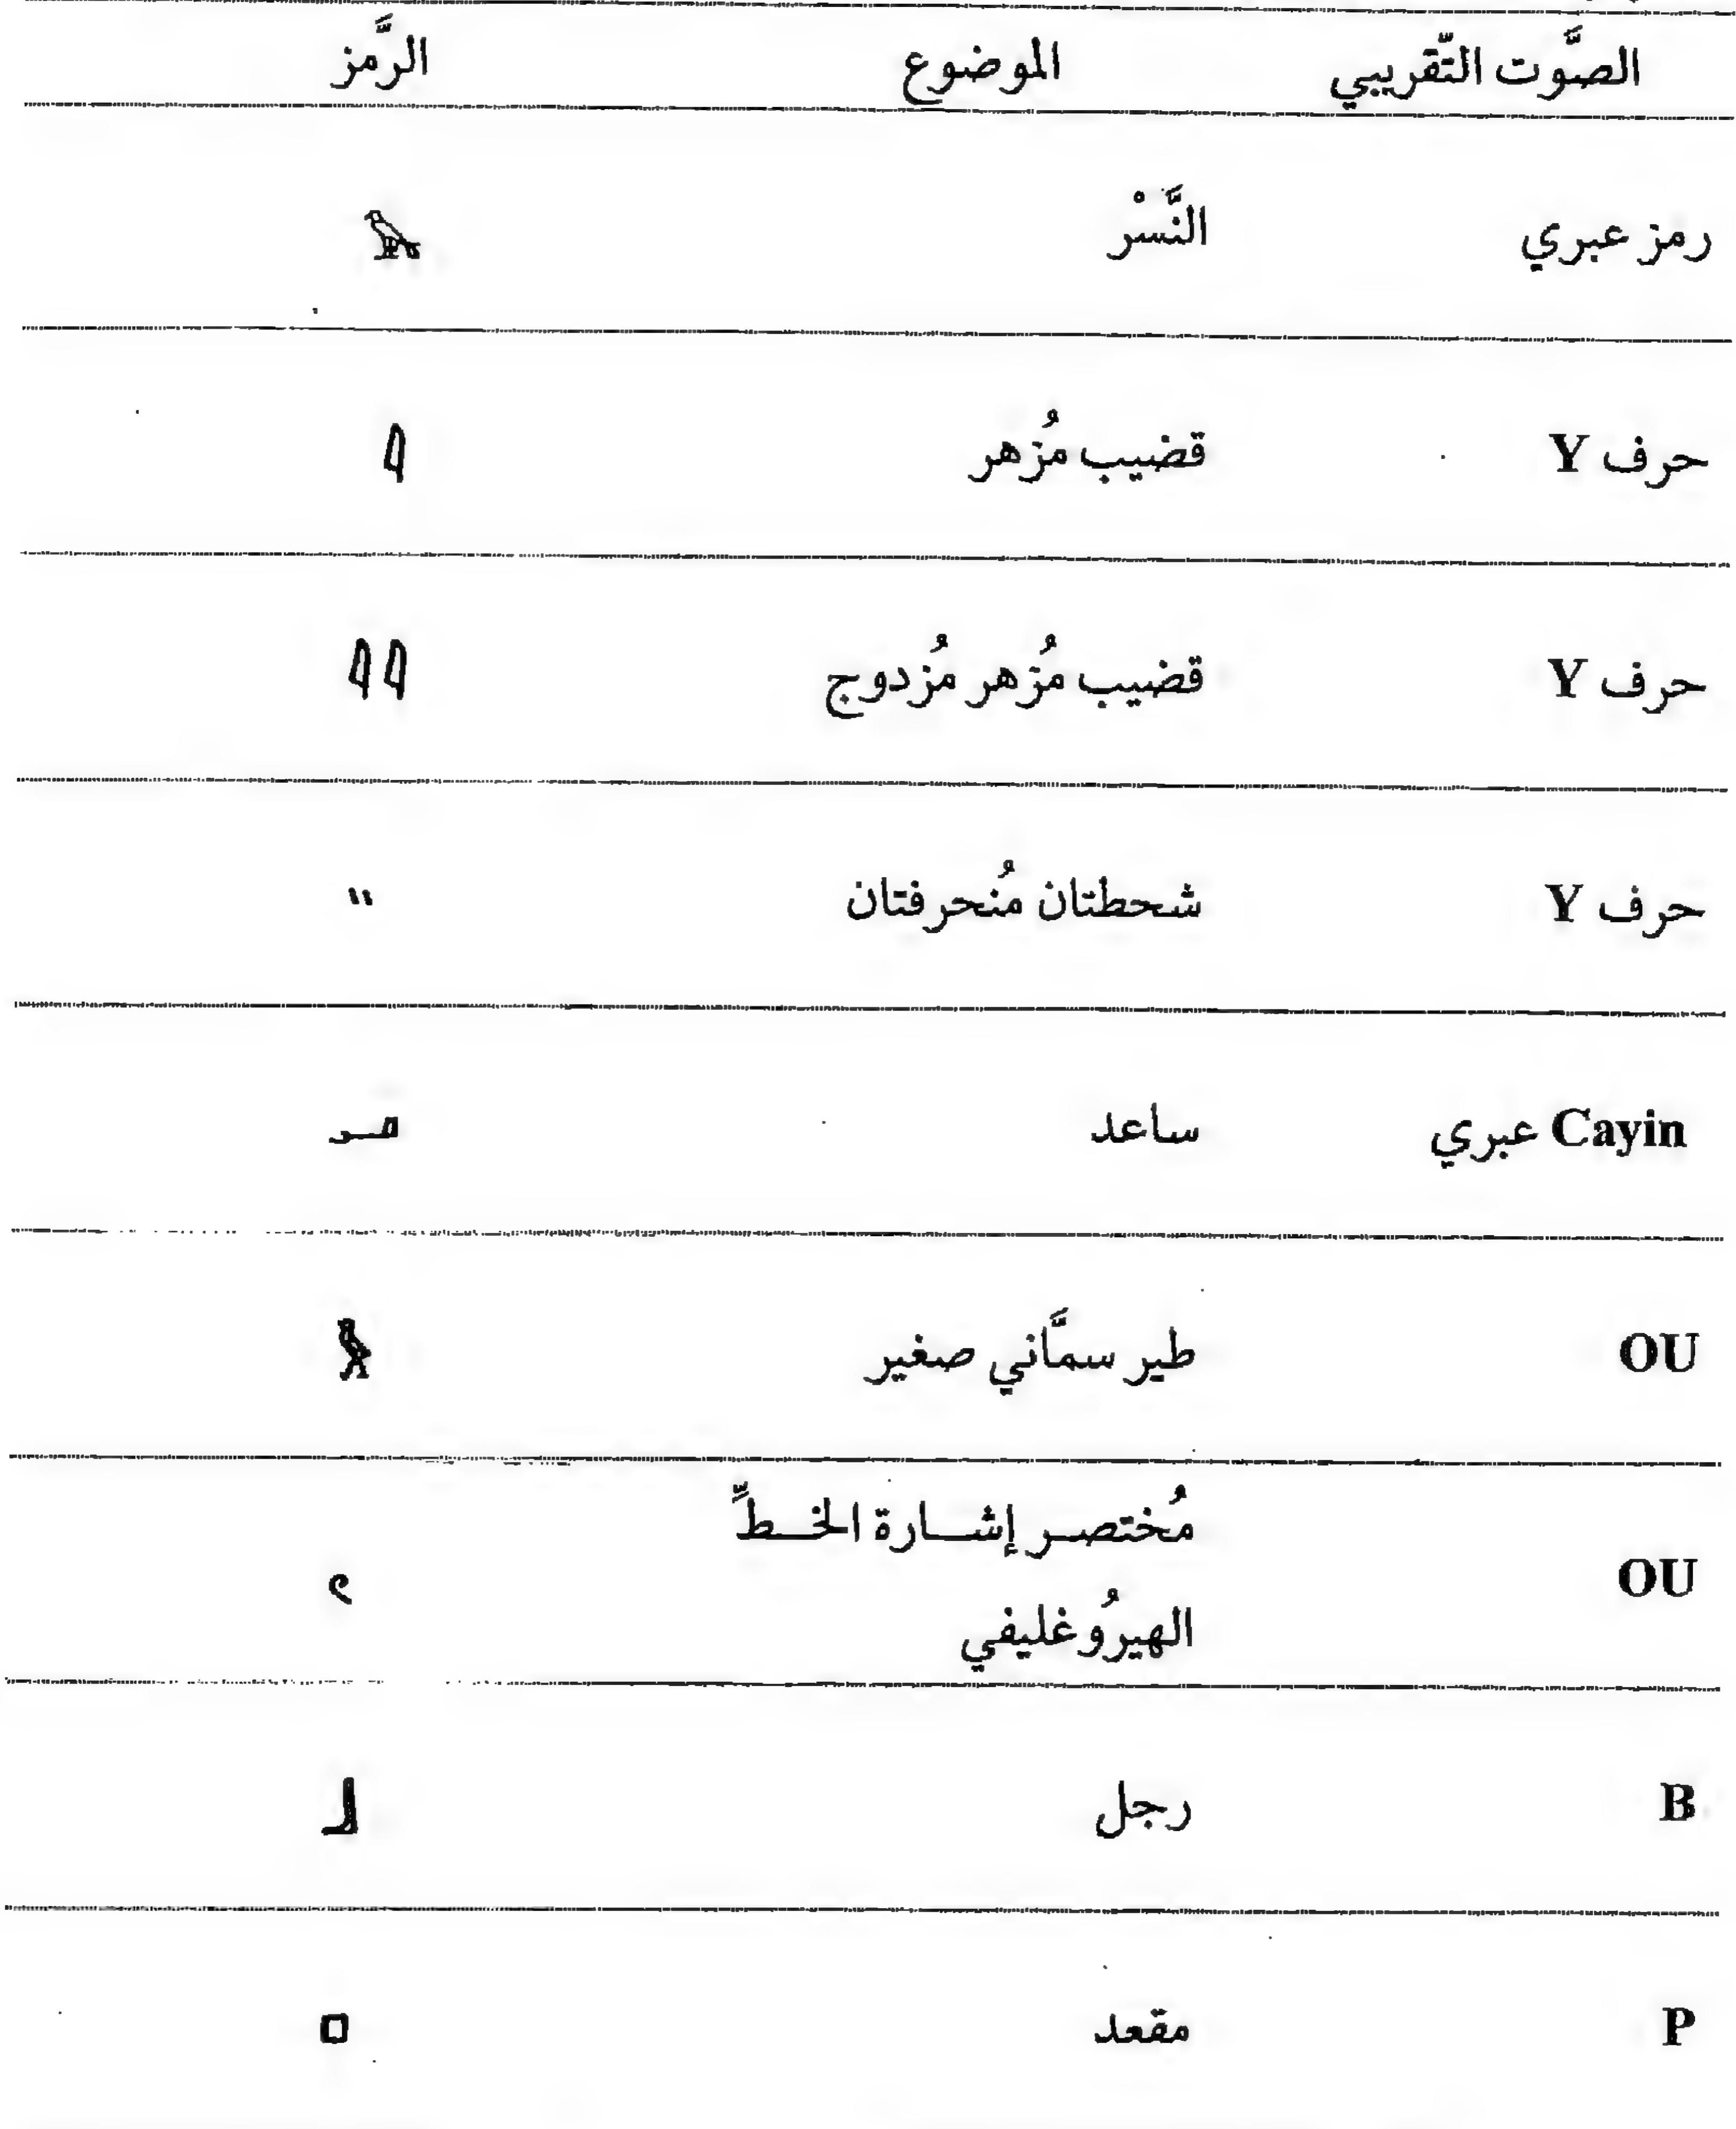 الصَّوت التَّقريبي الموضوع الرَّمز
رمز عبري النَّسْر 𓄿
حرف Y قضيب مُزهر 𓇋
حرف Y قضيب مُزهر مُزدوج 𓇋𓇋
حرف Y شحطتان مُنحرفتان 𓏭
Cayin عبري ساعد 𓂝
OU طير سمَّاني صغير 𓅱
OU مُختصر إشارة الخطِّ
الهيرُوغليفي 𓏲
B رجل 𓃀
P مقعد 𓊪